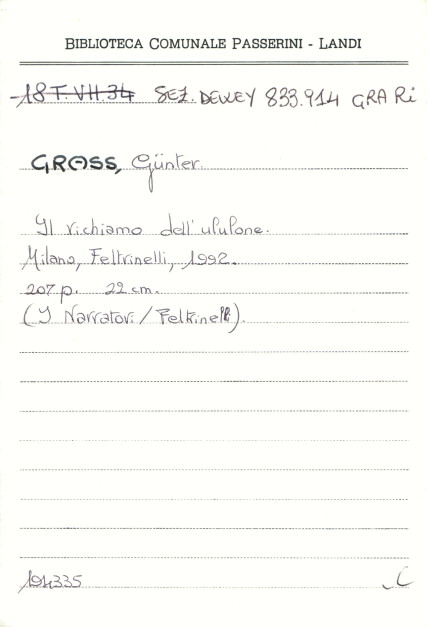 BIBLIOTECA COMUNALE PASSERINI - LANDI
18 T.VII.34 SEZ. DEWEY 833.914 GRA Ri
GRASS, Günter.
Il richiamo dell'ululone.
Milano, Feltrinelli, 1992.
207 p. 22 cm.
(I Narratori / Feltrinelli).
194335